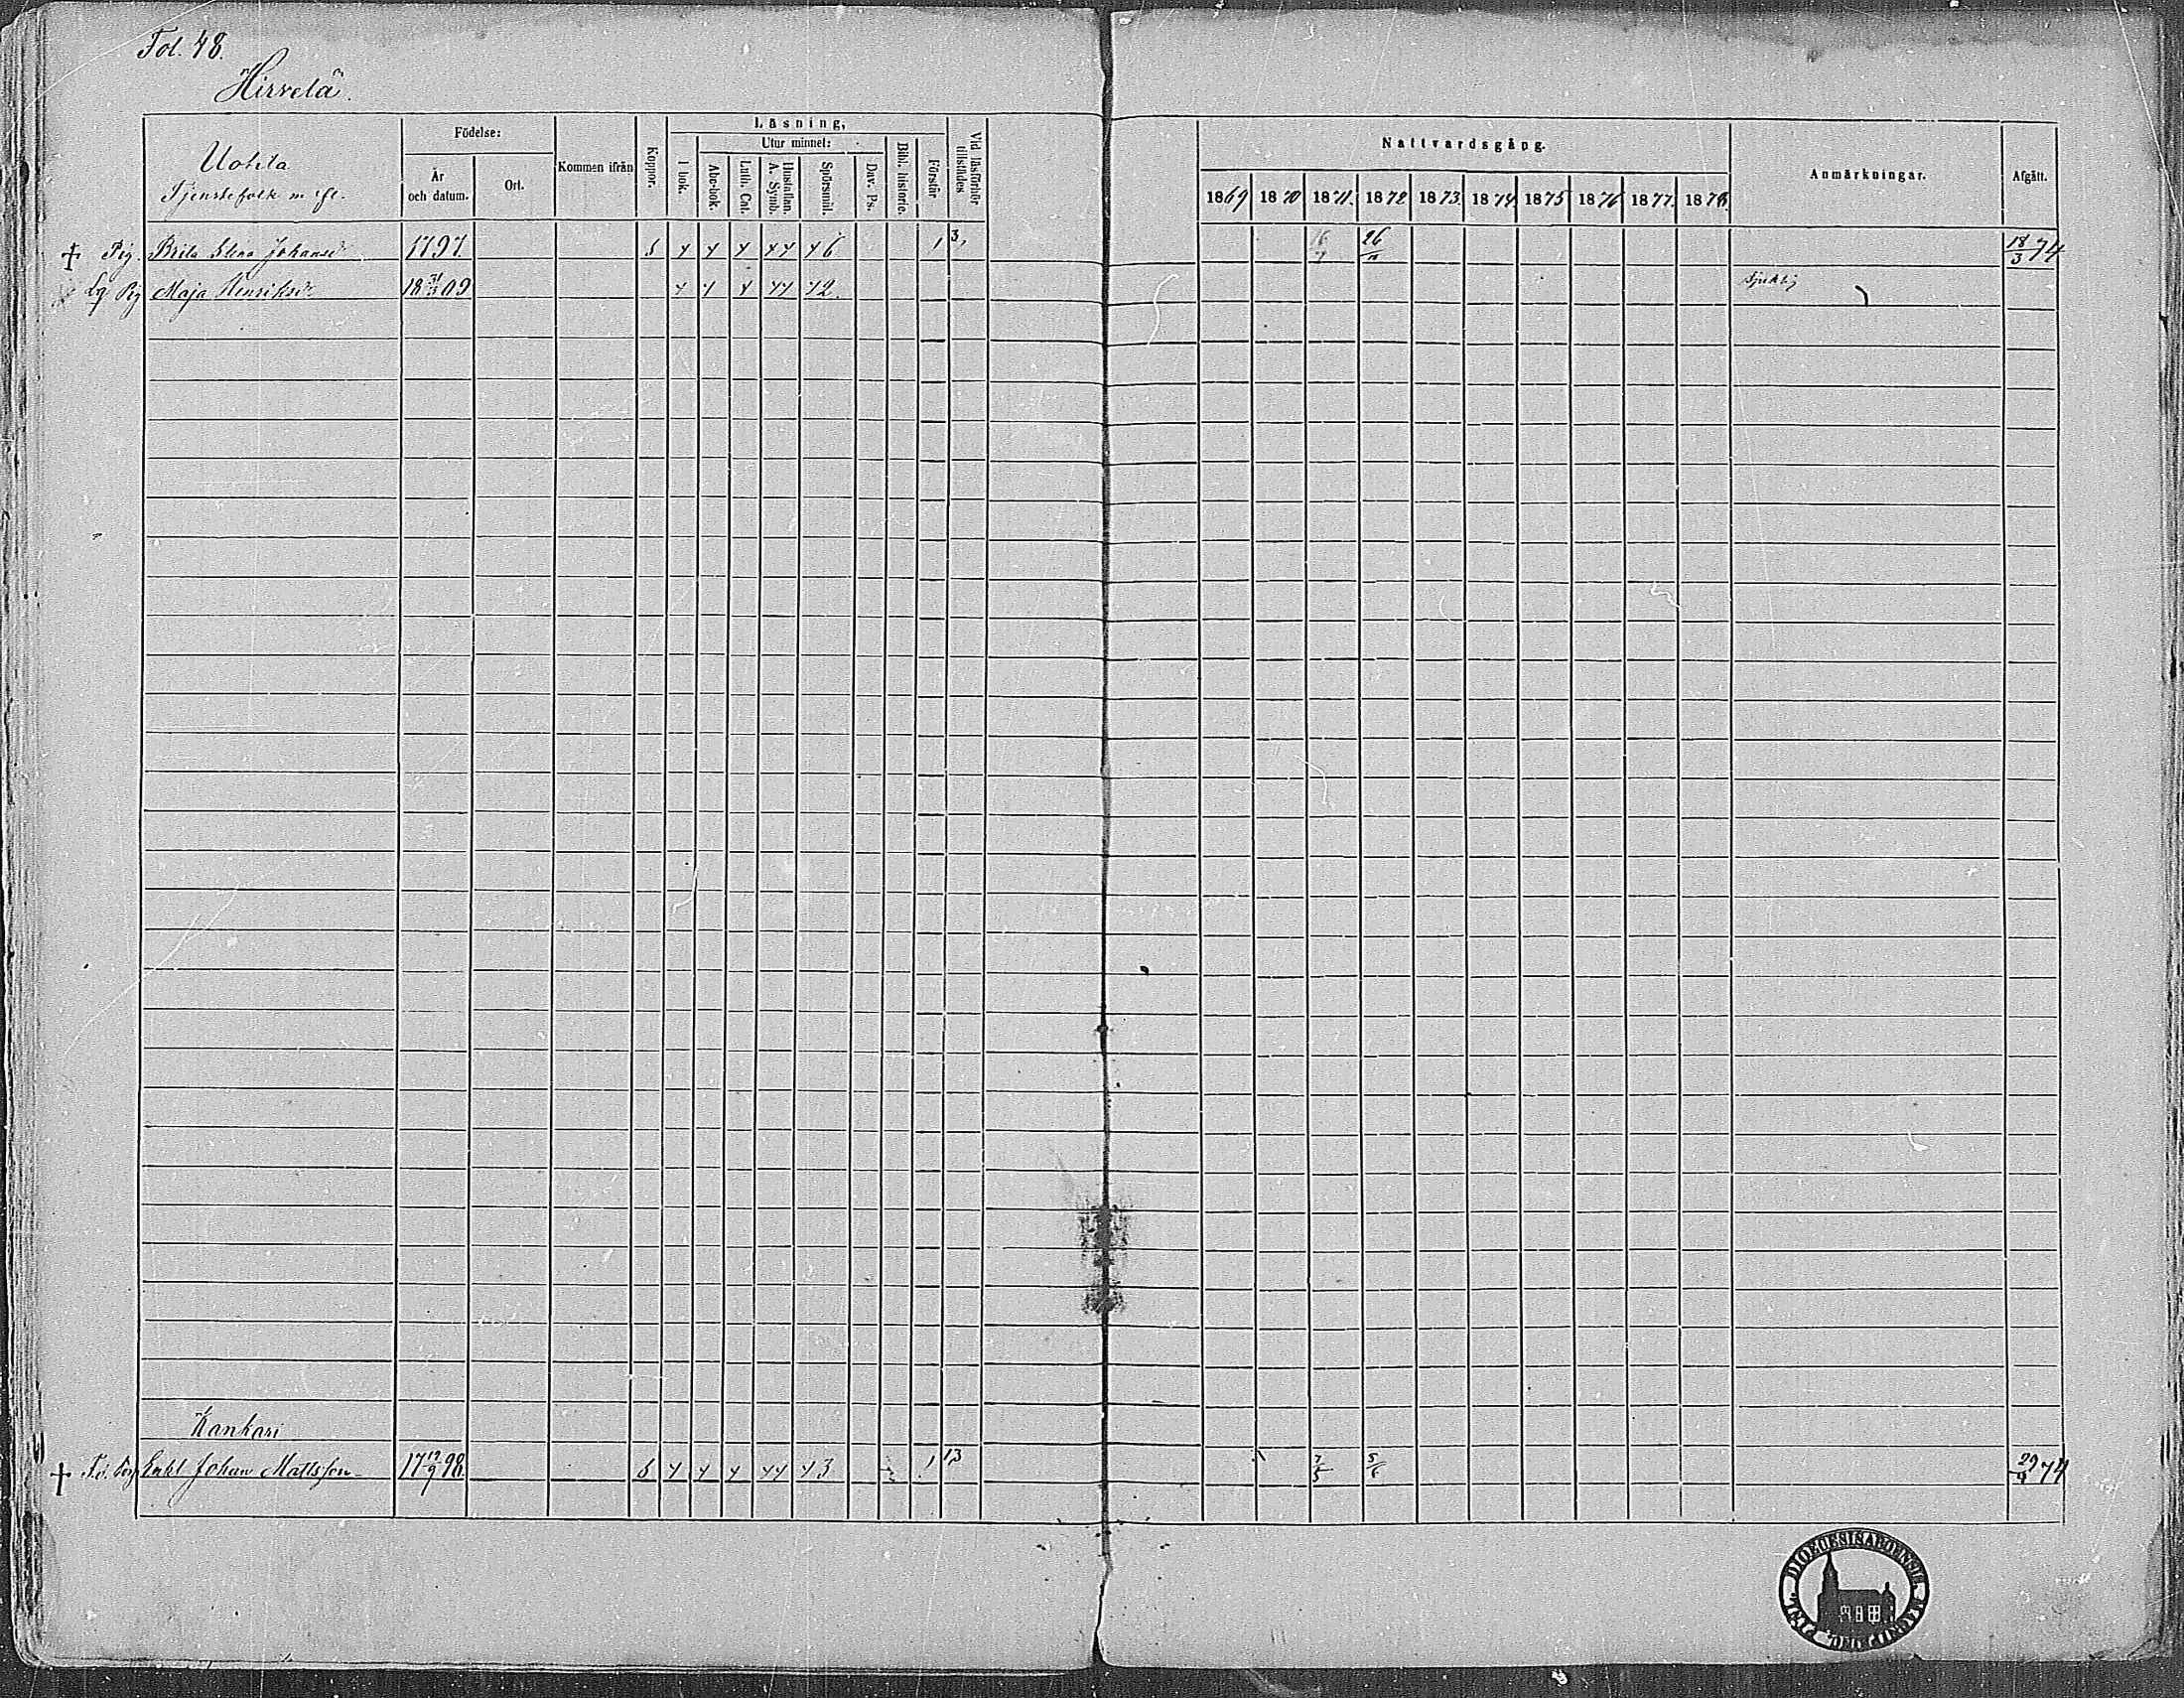 Fol. 48.
Hirvelä.
Uotila
Tjenstefolk m. fl.
Födelse:
År och datum.
Ort.
Kommen ifrån
Koppor.
Läsning,
I bok.
Utur minnet:
Abc-bok.
Luth. Cat.
Hustaflan. A. Symb.
Spörsmål.
Dav. Ps.
Bibl. historie.
Förstår
Vid läsförhör tillstädes
Nattvardsgång.
1869 1870 1871. 1872 1873. 1874. 1875 1876 1877. 1878.
Anmärkningar.
Afgått.
† Pig. Brita Johansdr 1797. 1 3, 26/10 18/3 74
Pig Maja Henriksdr 18 09 sjuklig
Kankari
† Enkl Johan Mattsson 17 12/9 98. 1 7/5 5/6 29/4 74